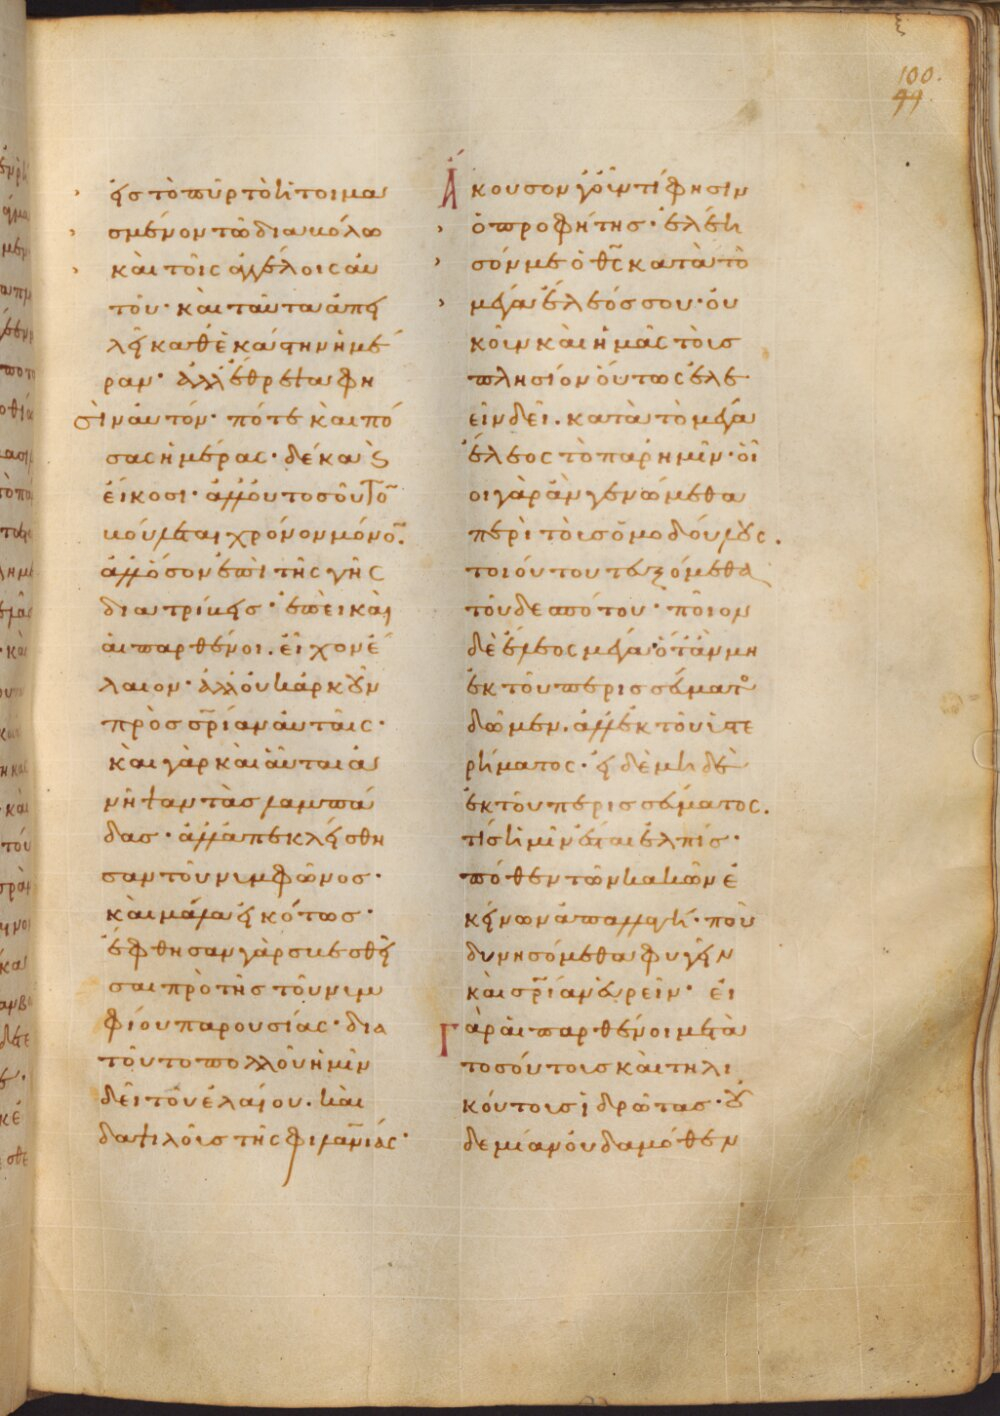 100.
99
εἰς τὸ πῦρ τὸ ἡτοιμα
σμένον τῶ διαβόλω
καὶ τοῖς ἀγγέλοις αὐ
τοῦ· καὶ ταῦτα ἀπει
λεῖ καθ' ἑκάστην ἡμέ
ραν· ἀλλ' ἔθρεψα φη
σὶν αὐτόν· πότε καὶ πό
σας ἡμέρας· δέκα ἢ
εἴκοσι· ἀλλ' οὐ τοσοῦτον
βούλεται χρόνον μόνον.
ἀλλ' ὅσον ἐπὶ τῆς γῆς
διατρίβεις· ἐπεὶ καὶ
αἱ παρθένοι. εἶχον ἔ
λαιον· ἀλλ' οὐκ ἀρκοῦν
πρὸς σ̅ρίαν αὐταῖς·
καὶ γὰρ καὶ αὗται ἀ
νῆψαν τὰς λαμπά
δας· ἀλλ' ἀπεκλείσθη
σαν τοῦ νυμφῶνος·
καὶ μάλα εἰκότως·
ἔφθησαν γὰρ σβεσθεῖ
σαι πρὸ τῆς τοῦ νυμ
φίου παρουσίας· δια
τοῦτο πολλοῦ ἡμῖν
δεῖ τοῦ ἐλαίου. καὶ
δαψιλοῦς τῆς φιλαν̅ίας·
Ἄκουσον γοῦν τί φησιν
ὁ προφήτης· ἐλέη
σόν με ὁ θ̅ς κατὰ τὸ
μέγα ἔλεός σου· οὐ
κοῦν καὶ ἡμᾶς τοὺς
πλησίον οὕτως ἐλε
εῖν δεῖ. κατὰ τὸ μέγα
ἔλεος τὸ παρ' ἡμῖν· οἷ
οι γὰρ ἂν γενώμεθα
περὶ τοὺς ὁμοδούλους.
τοιούτου τευξόμεθα
τοῦ δεσπότου· ποῖον
δὲ ἔλεος μέγα· ὅταν μὴ
ἐκ τοῦ περισσεύματος
δῶμεν. ἀλλ' ἐκ τοῦ ὑστε
ρήματος· εἰ δὲ μηδὲ
ἐκ τοῦ περισσεύματος.
τίς ἡμῖν ἔσται ἐλπίς·
πόθεν τῶν κακῶν ἐ
κείνων ἀπαλλαγή· ποῦ
δυνησόμεθα φυγεῖν
καὶ σ̅ρίαν εὑρεῖν· εἰ
γὰρ αἱ παρθένοι μετὰ
τοσούτους καὶ τηλι
κούτους ἱδρῶτας· οὐ
δεμίαν οὐδαμόθεν